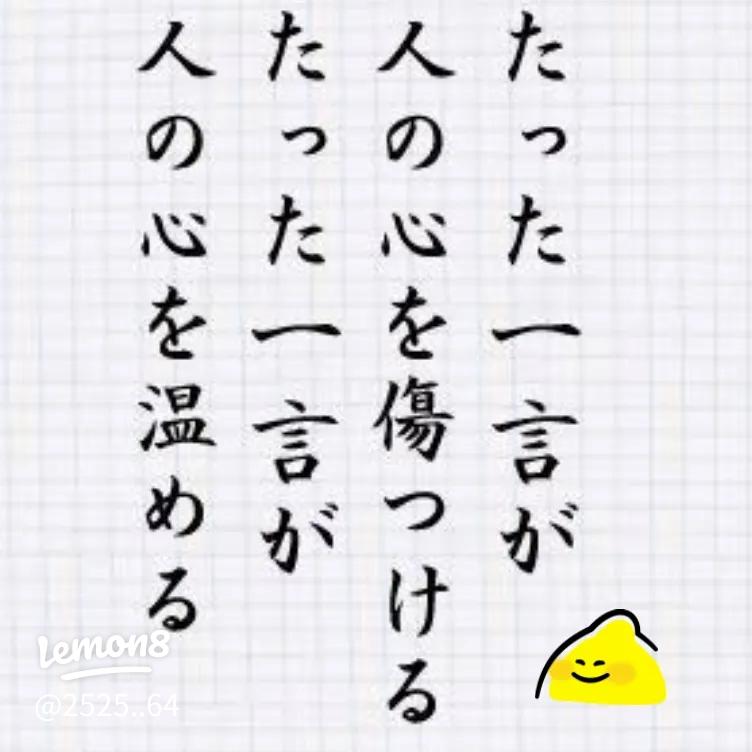 たった一言が
人の心を傷つける
たった一言が
人の心を温める
lemon8
@2525..64